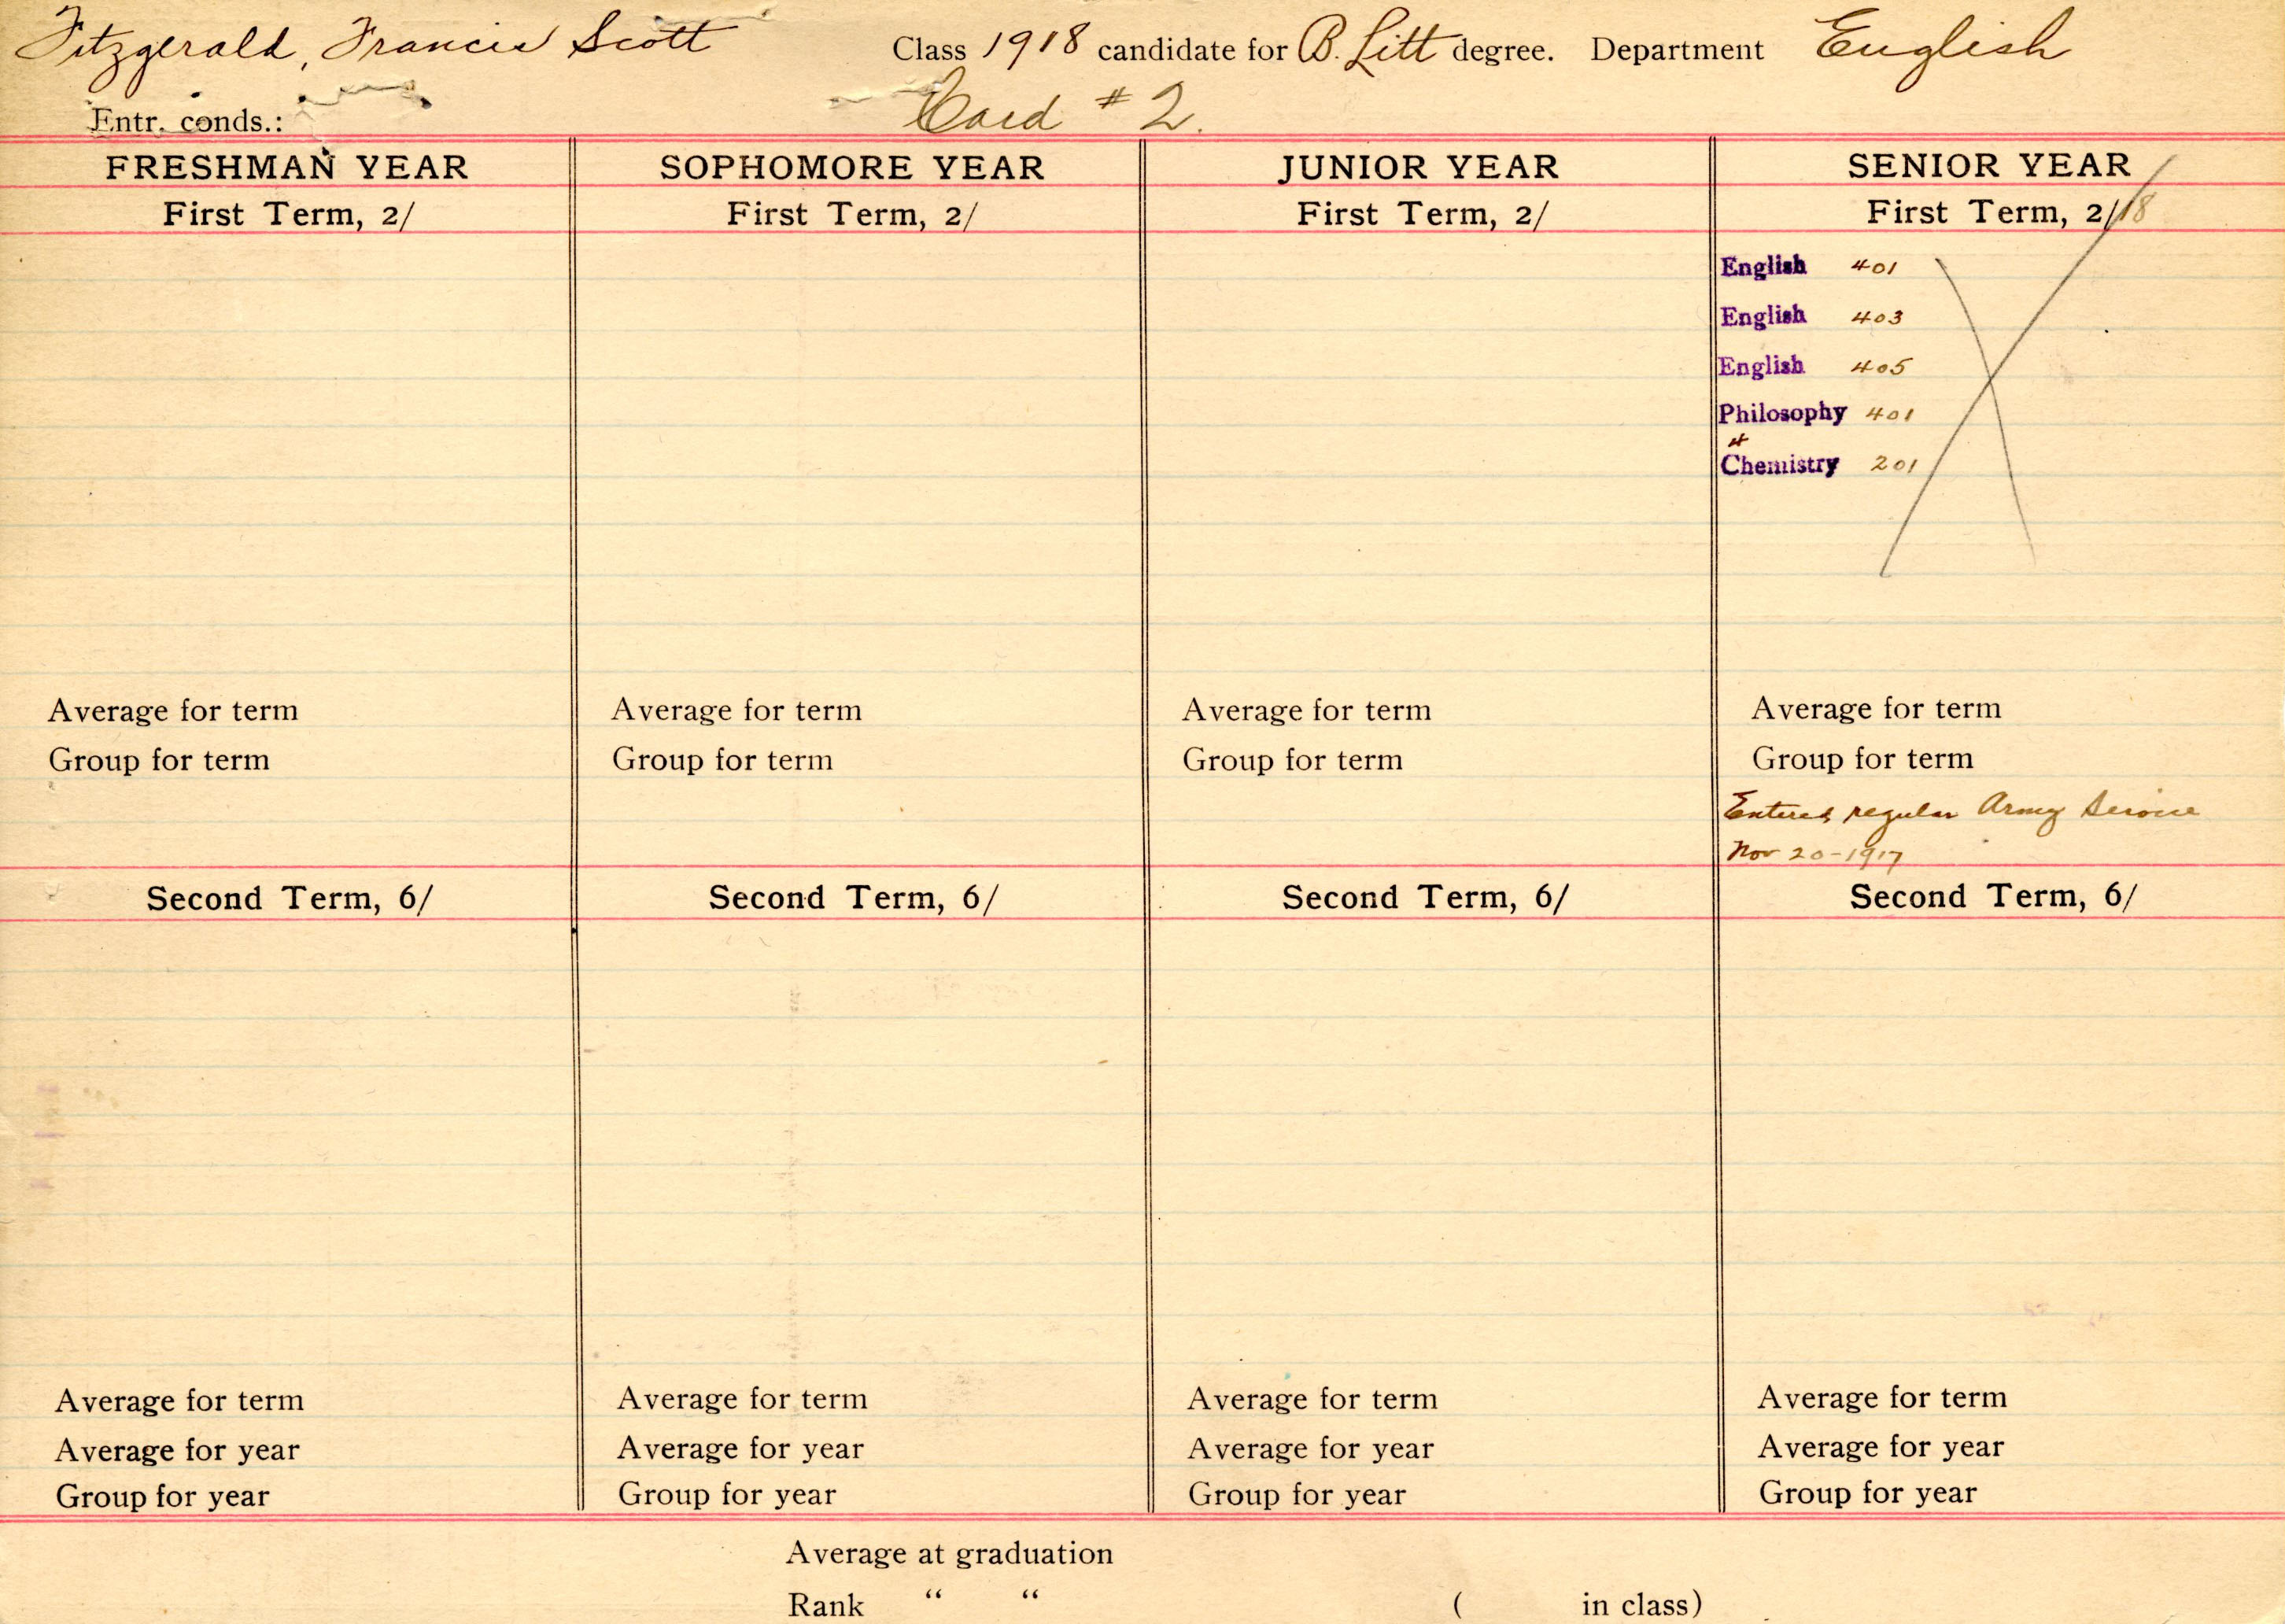 Fitzgerald, Francis Scott Class 1918 candidate for B. Litt degree. Department English
Entr. conds.: Card # 2.
FRESHMAN YEAR SOPHOMORE YEAR JUNIOR YEAR SENIOR YEAR
First Term, 2/ First Term, 2/ First Term, 2/ First Term, 2/18
English 401
English 403
English 405
Philosophy 401
Chemistry 201
Average for term Average for term Average for term Average for term
Group for term Group for term Group for term Group for term
Entered regular Army Service
Nov 20-1917
Second Term, 6/ Second Term, 6/ Second Term, 6/ Second Term, 6/
Average for term Average for term Average for term Average for term
Average for year Average for year Average for year Average for year
Group for year Group for year Group for year Group for year
Average at graduation
Rank “ “ ( in class)